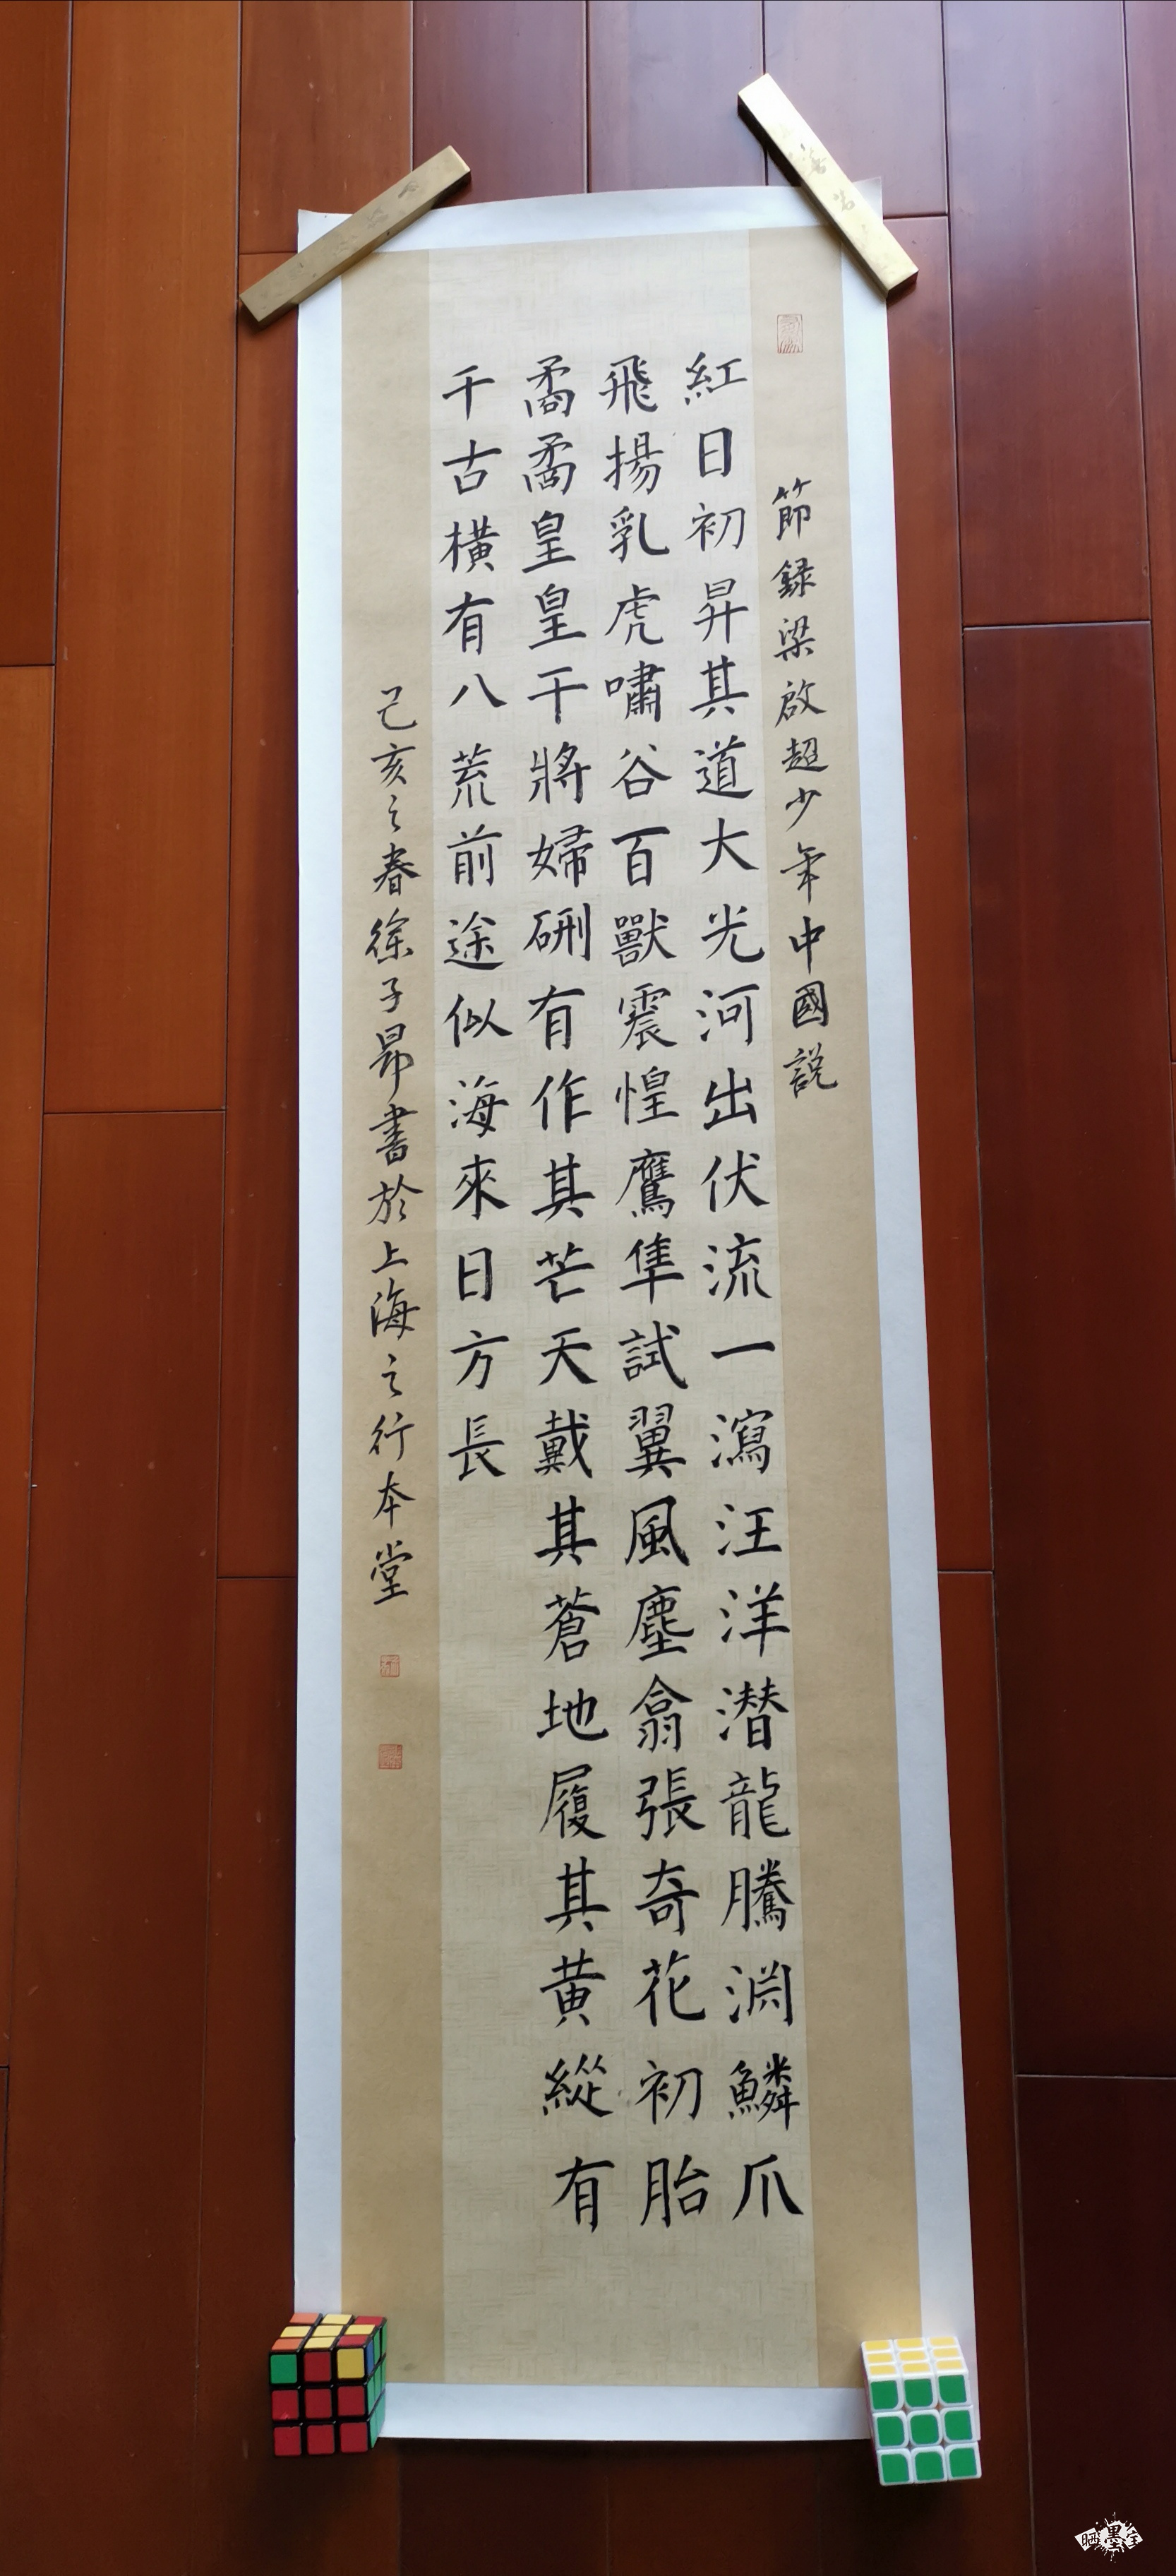 節録梁啟超少年中國説
紅日初昇其道大光河出伏流一瀉汪洋潜龍騰渕鱗爪
飛揚乳虎嘯谷百獸震惶鷹隼試翼風塵翕張奇花初胎
矞矞皇皇干將婦硎有作其芒天戴其蒼地履其黄縱有
千古橫有八荒前途似海來日方長
己亥之春徐子昂書於上海之行本堂
晒墨宝